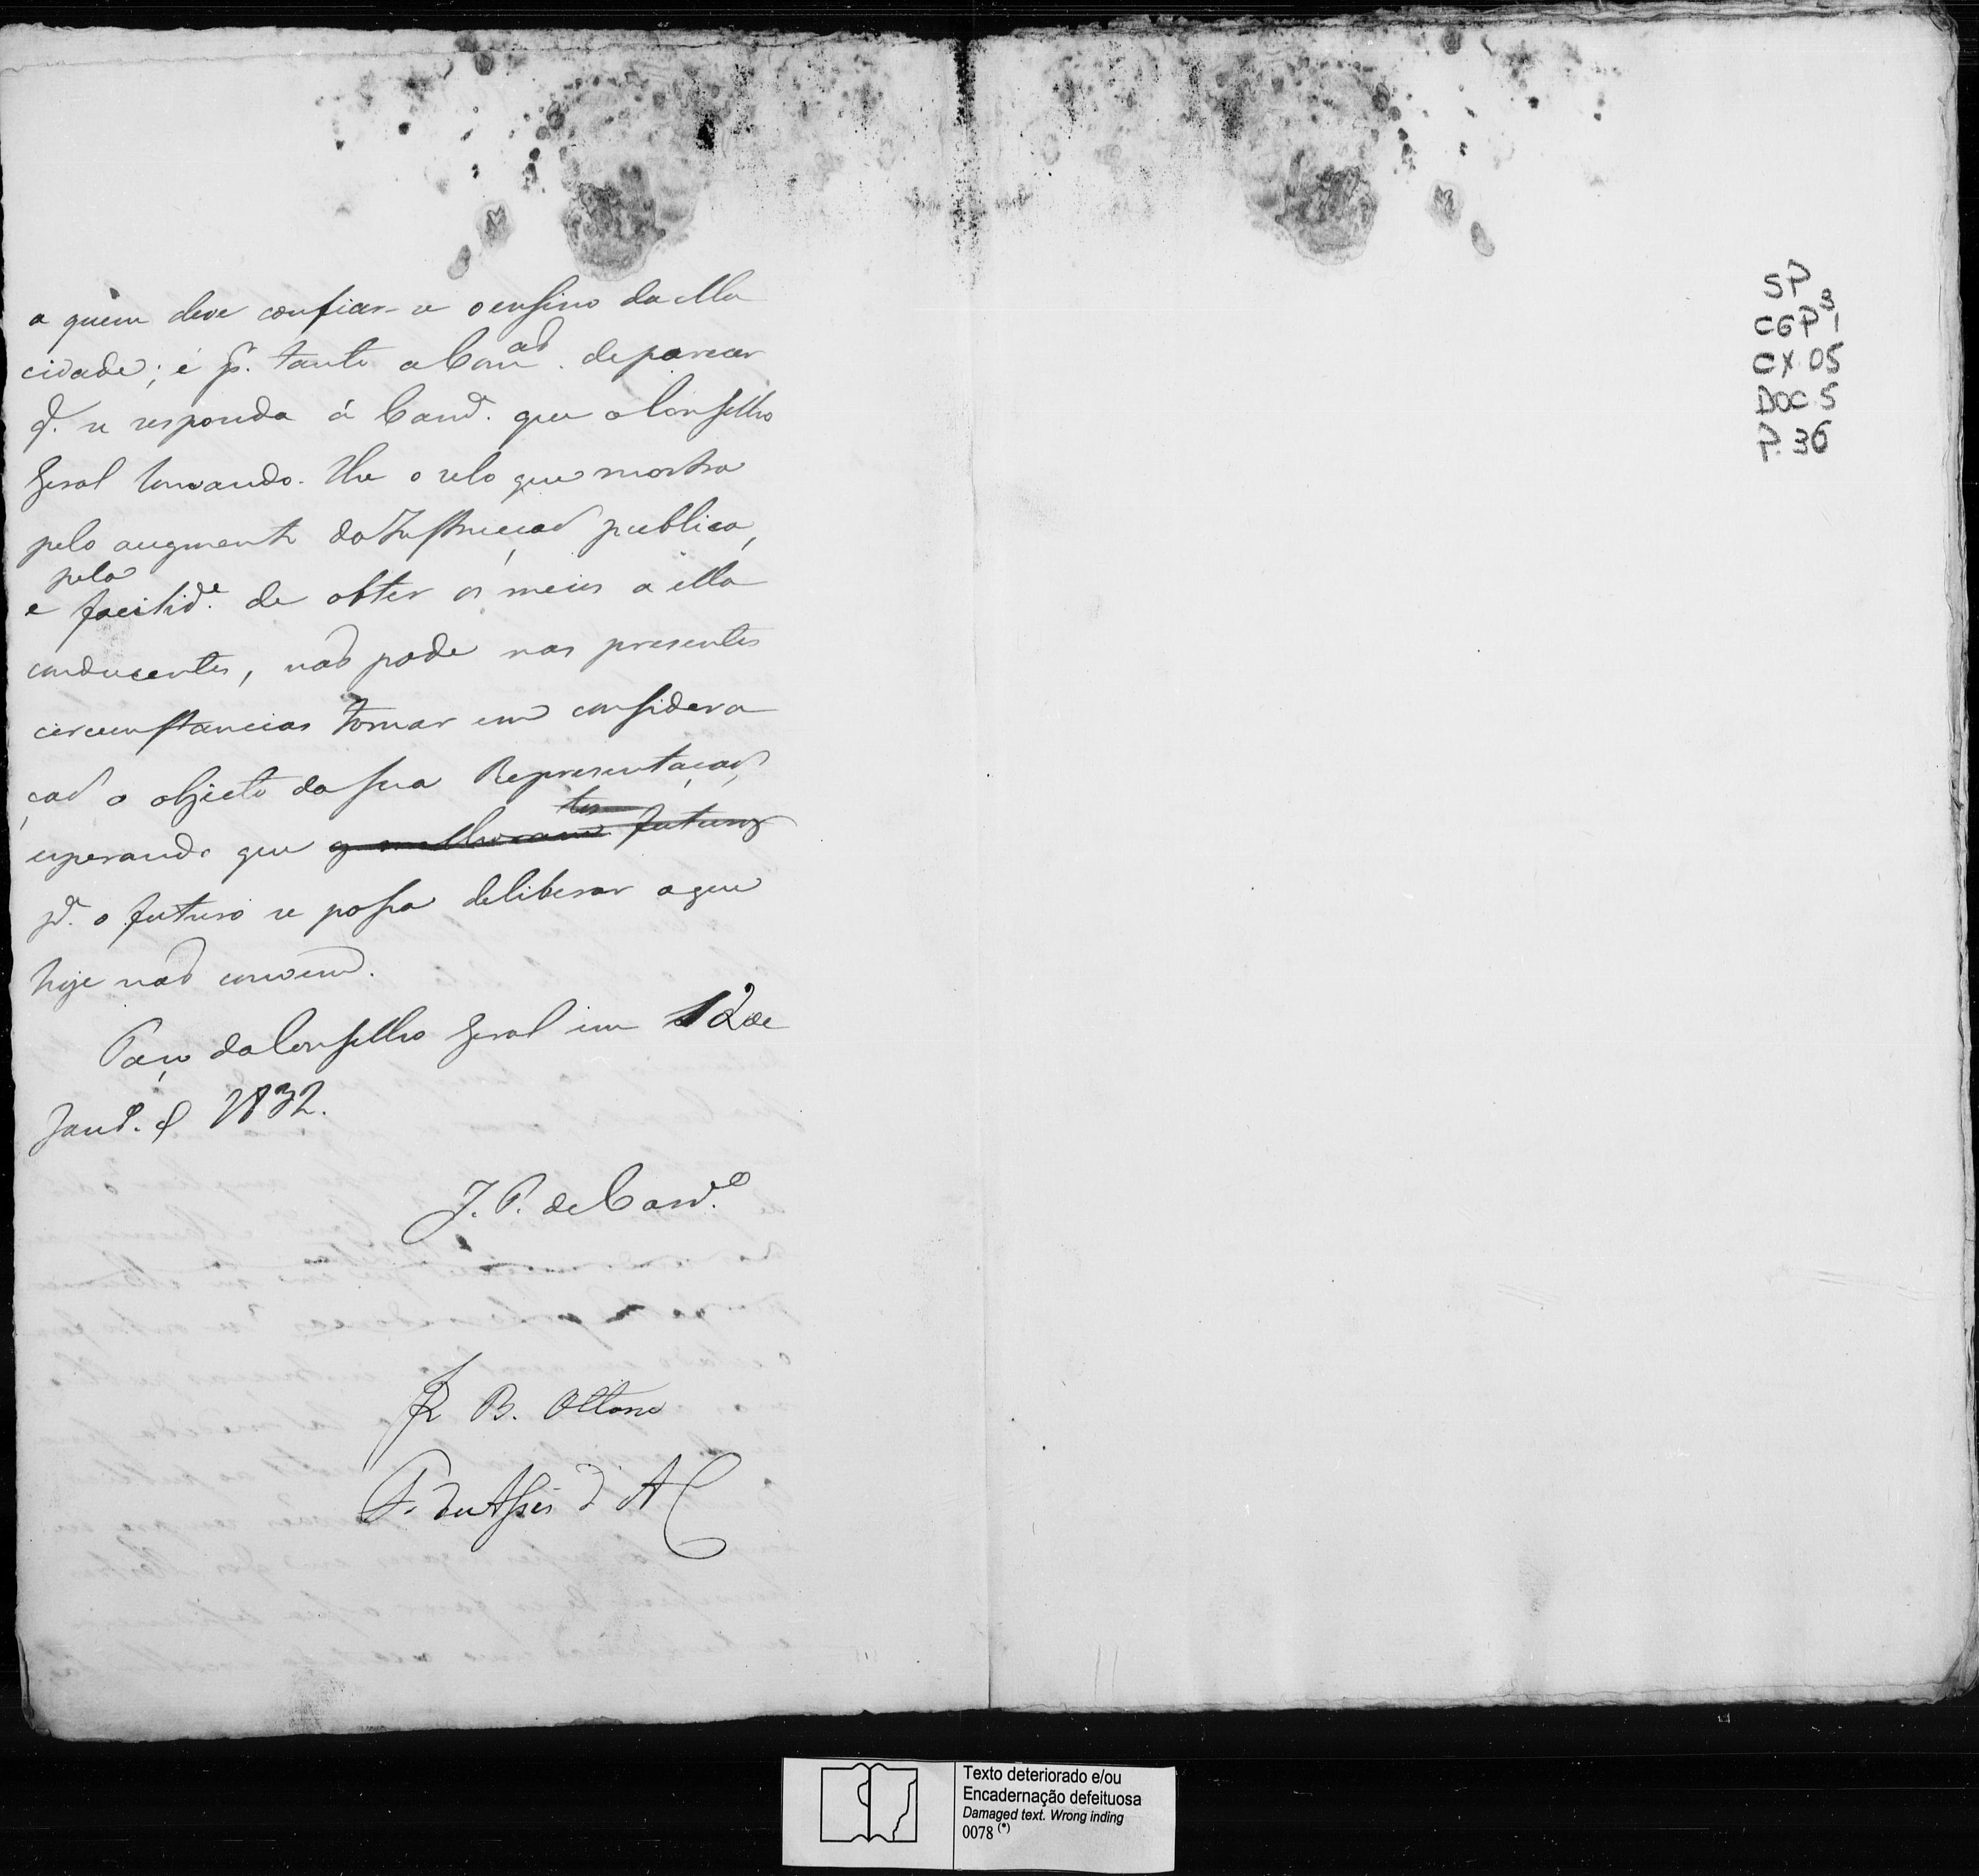 a quem deve confiar-se o ensino da Mo
cidade; é pr. tanto a Com.ão de parecer
q. se responda á Cam.ª que o Conselho
Geral louvando-lhe o zelo que mostra
pelo augmento da Instrucçaõ publica,
e pela facilid.e de obter os meios a ella
conducentes, naõ pode nas presentes
circunstancias tomar em considera
çaõ o objecto da sua Representaçaõ,
esperando que futuros
p.ª o futuro se possa deliberar o que
hoje naõ convem.
Paço do Conselho Geral em 12 de
Janr.º d' 1832.
J. P. de Carv.o
J. B. Ottoni
F. de Assis d' A
SP
CGP 31
CX 05
DOC 5
P. 36
Texto deteriorado e/ou
Encadernação defeituosa
Damaged text. Wrong inding
0078 (*)